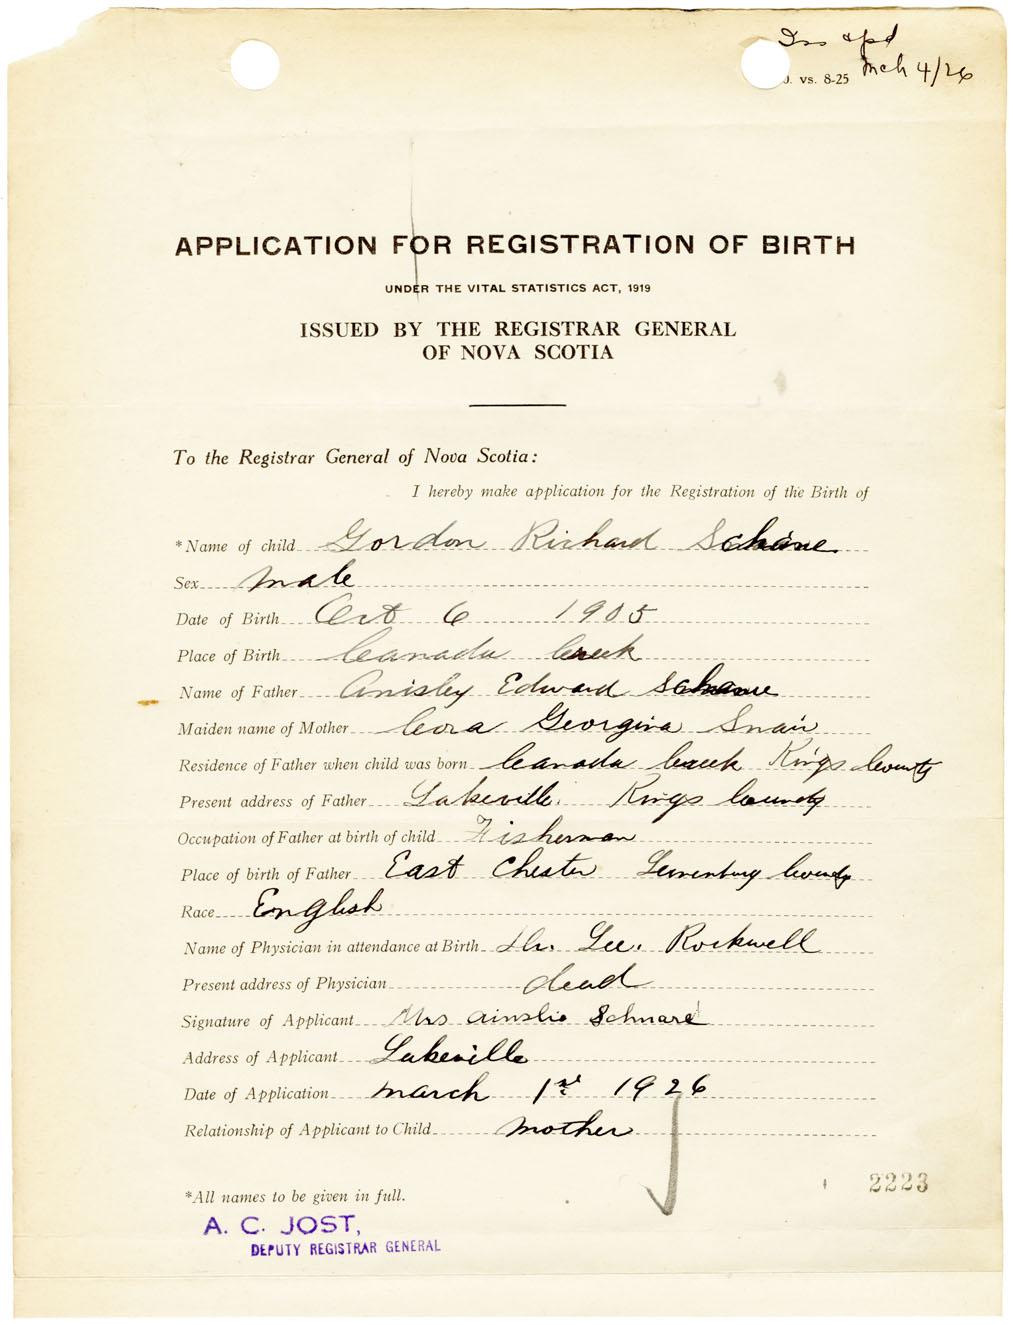 Ins apd
O. vs. 8-25 Mch 4/26
APPLICATION FOR REGISTRATION OF BIRTH
UNDER THE VITAL STATISTICS ACT, 1919
ISSUED BY THE REGISTRAR GENERAL
OF NOVA SCOTIA
To the Registrar General of Nova Scotia:
I hereby make application for the Registration of the Birth of
*Name of child Gordon Richard
Sex Male
Date of Birth Oct 6 1905
Place of Birth Canada Creek
Name of Father Anisley Edward
Maiden name of Mother Cora Georgina Snair
Residence of Father when child was born Canada Creek Kings County
Present address of Father Lakeville. Kings County
Occupation of Father at birth of child Fisherman
Place of birth of Father East Chester Lunenburg County
Race English
Name of Physician in attendance at Birth Dr. Lee. Rockwell
Present address of Physician dead
Signature of Applicant Mrs Ainslie Schnare
Address of Applicant Lakeville
Date of Application March 1st 1926
Relationship of Applicant to Child Mother
*All names to be given in full.
2223
A. C. JOST,
DEPUTY REGISTRAR GENERAL